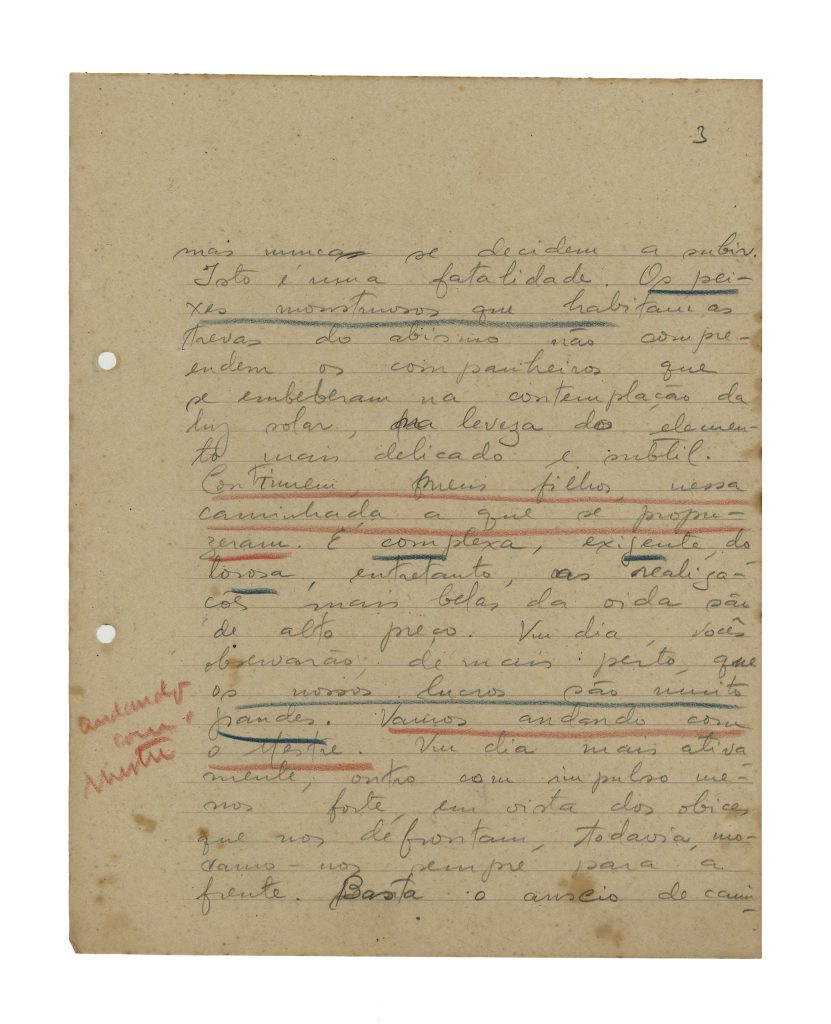 3
mas nunca se decidem a subir.
Isto é uma fatalidade. Os pei-
xes monstruosos que habitam as
trevas do abismo não compre-
endem os companheiros que
se embeberam na contemplação da
luz solar, na leveza do elemen-
to mais delicado e subtil.
Continuem, meus filhos, nessa
caminhada a que se propu-
zeram. É complexa, exigente, do
lorosa, entretanto, as realiza-
ções mais belas da vida são
de alto preço. Um dia, vocês
observarão, de mais perto, que
os nossos lucros são muito
grandes. Vamos andando com
o Mestre. Um dia mais ativa
mente, outro com impulso me-
nos forte, em vista dos obices
que nos defrontam, todavia, mo-
vamo-nos sempre para a
frente. Basta o anseio de cami-
andando
com o
Mestre